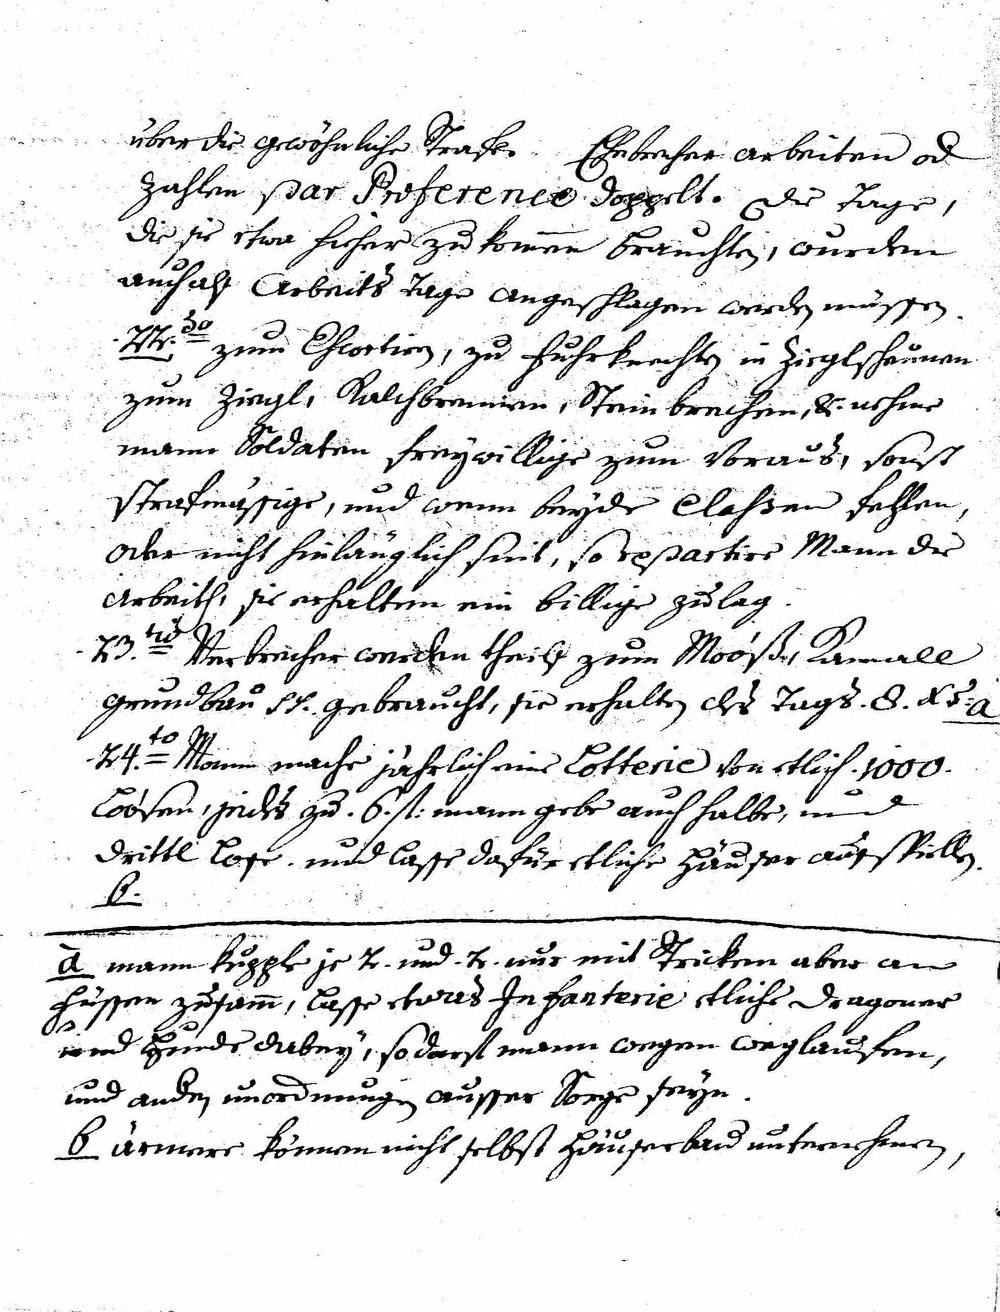 über die gewöhnliche Strafe. Ehebrecher arbeiten od
zahlen par Preference doppelt. die Tage,
die sie etwa hieher zu kom̅en brauchten, wurden
auch als Arbeits Tage angeschlagen werden müssen.
22.do zum Escortiren, zu Fuhrknechten in Zieglscheunen
zum Ziegl, Kalchbrennen, Steinbrechen, &. nehme
mann Soldaten freywillige zum Voraus, sonst
strafmässige, und wenn beyde Classen fehlen,
oder nicht hinlänglich sint, so repartire Mann die
Arbeith, sie erhalten ein billige zulag.
23.tio Verbrecher werden theils zum Moos, Kannall
grundbau gebraucht, sie erhalten des Tags. 8. xr. a
24.to Mann mache jährlich eine Lotterie von etlich. 1000.
Loosen, jedes zu. 6. f: mann gebe auch halbe, und
drittl Lose. und lasse dafür etliche Häuser ausspiellen.
b.
a mann kupple je 2. und. 2. nur mit Stricken aber an
Füssen zusam̅, lasse etwas Infanterie etliche Dragoner
und Hunde dabey, so darf mann wegen weglaufen,
und andern unordnungen ausser Sorge seyn.
b ärmere können nicht selbst Häuserbau unternehmen,